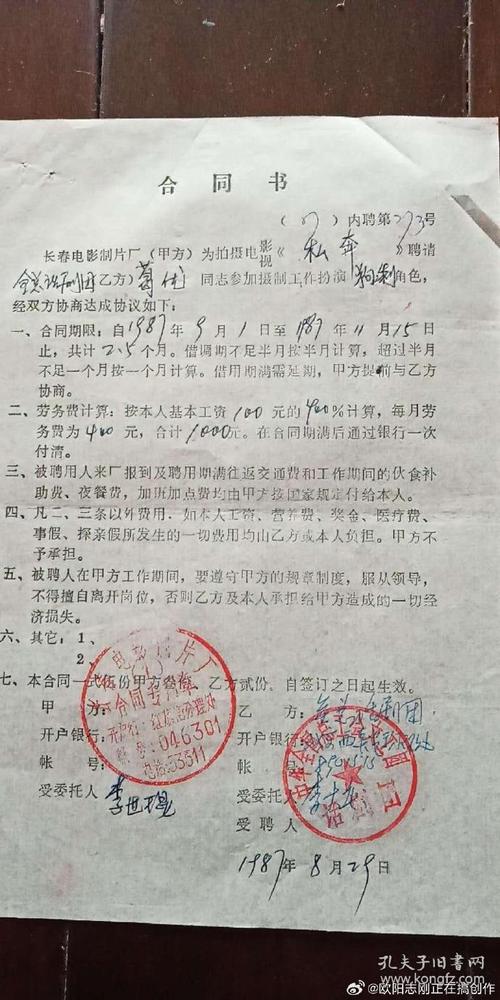 合同书
(87)内聘第273号
长春电影制片厂(甲方)为拍摄电影视《私奔》聘请
全总话剧团(乙方)葛优同志参加摄制工作扮演狗剩角色,
经双方协商达成协议如下:
一、合同期限:自1987年9月1日至1987年11月15日
止,共计2.5个月。借调期不足半月按半月计算,超过半月
不足一个月按一个月计算。借用期满需延期,甲方提前与乙方
协商。
二、劳务费计算:按本人基本工资100元的400%计算,每月劳
务费为400元,合计1000元。在合同期满后通过银行一次
付清。
三、被聘用人来厂报到及聘用期满往返交通费和工作期间的伙食补
助费、夜餐费,加班加点费均由甲方按国家规定付给本人。
四、凡二、三条以外费用,如本人工资、营养费、奖金、医疗费、
事假、探亲假所发生的一切费用均由乙方或本人负担。甲方不
予承担。
五、被聘人在甲方工作期间,要遵守甲方的规章制度,服从领导,
不得擅自离开岗位,否则乙方及本人承担给甲方造成的一切经
济损失。
六、其它:1、
2、
七、本合同一式伍份甲方叁份,乙方贰份,自签订之日起生效。
甲方:
乙方:全总话剧团
开户银行:
开户银行:
帐号:
帐号:
受委托人 李世琨
受委托人
受聘人
电影制片厂
合同专用章
046301
电话:53311
1987年8月29日
孔夫子旧书网
@欧阳志刚正在搞创作